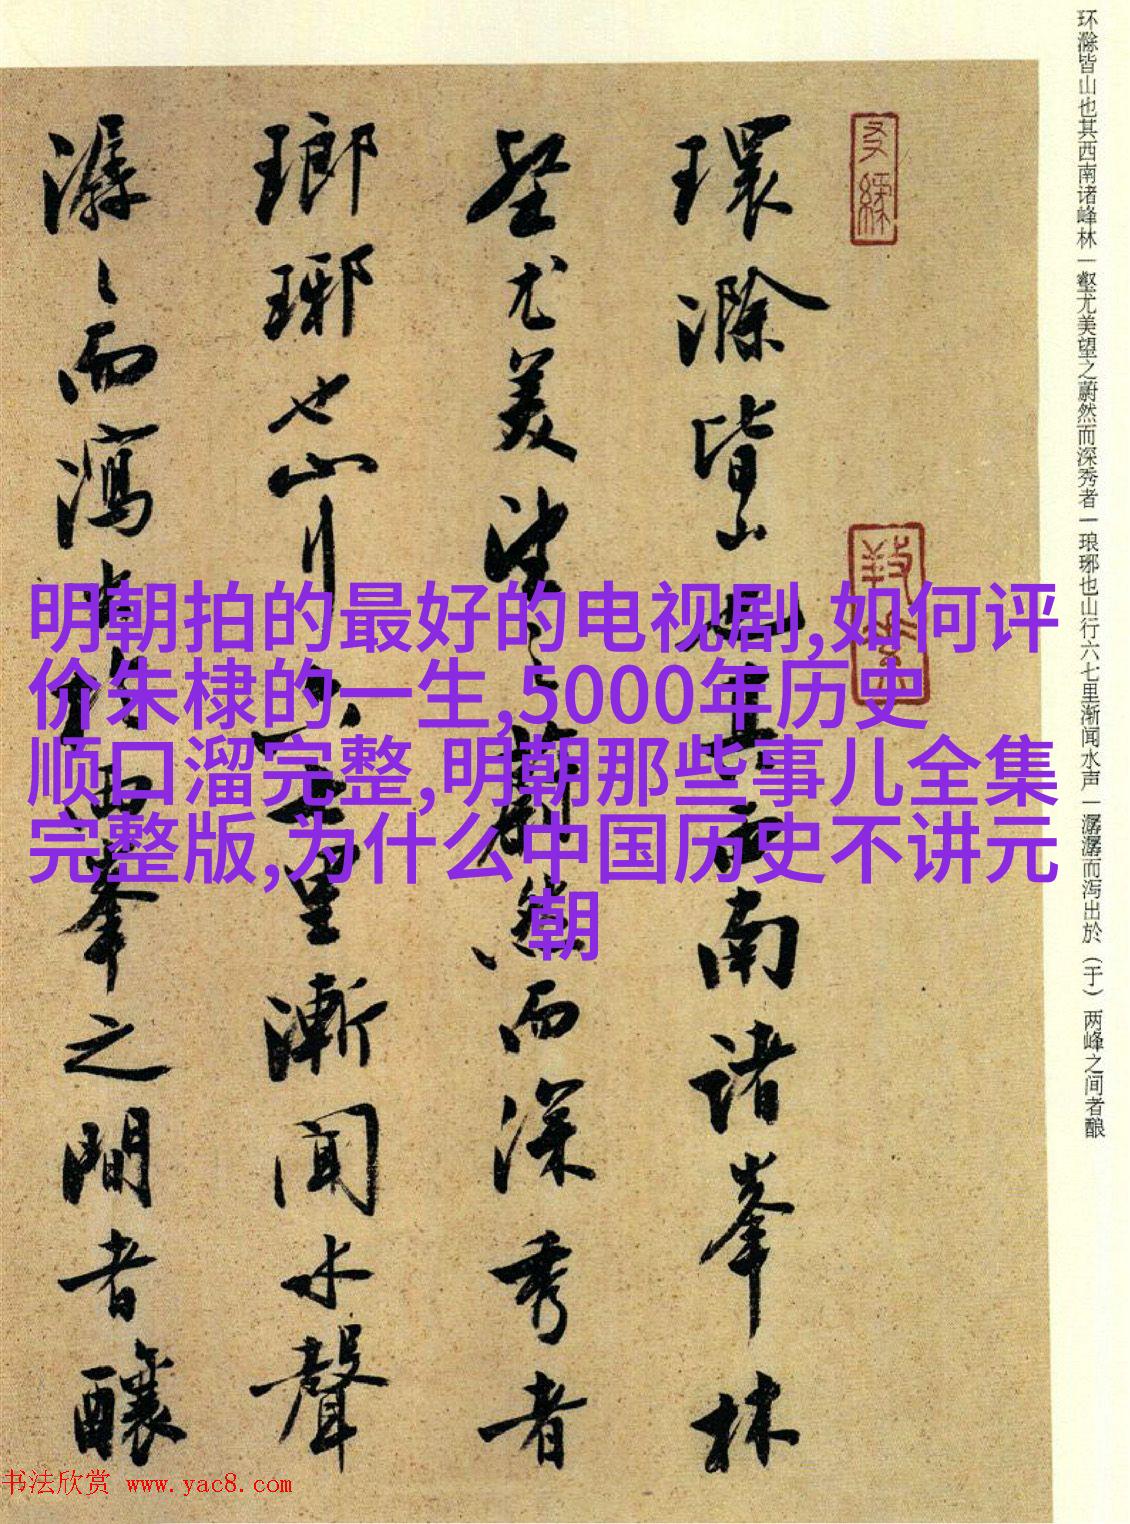 环滁皆山也其西南诸峰林一壑尤美望之蔚然而深秀者一琅琊也山行六七里渐闻水声一潺潺而泻出於（于）两峰之间者酿
環滁皆山也其西南諸峯林
壑尤美望之蔚然而深秀者
瑯琊也山行六七里漸聞水聲
潺〻而瀉出於兩峯之間者釀
明朝拍的最好的电视剧,如何评
价朱棣的一生,5000年历史
顺口溜完整,明朝那些事儿全集
完整版,为什么中国历史不讲元
朝
书法欣赏 www.yac8.com